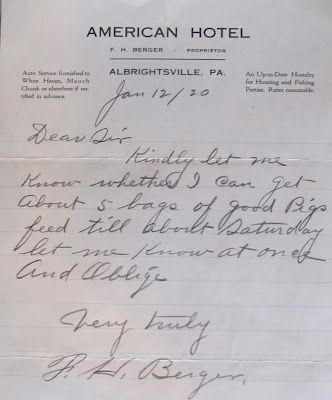 AMERICAN HOTEL
F. H. BERGER - PROPRIETOR
ALBRIGHTSVILLE, PA.
Auto Service furnished to
White Haven, Mauch
Chunk or elsewhere if no-
tified in advance.
An Up-to-Date Hostelry
for Hunting and Fishing
Parties. Rates reasonable.
Jan 12/20
Dear Sir
Kindly let me
Know whether I can get
about 5 bags of good Pigs
feed till about Saturday
let me Know at once
And Oblige
Very truly
F. H. Berger.